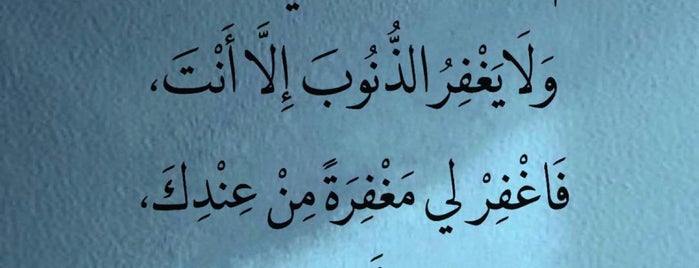 وَلَا يَغْفِرُ الذُّنُوبَ إِلَّا أَنْتَ،
فَاغْفِرْ لِي مَغْفِرَةً مِنْ عِنْدِكَ،